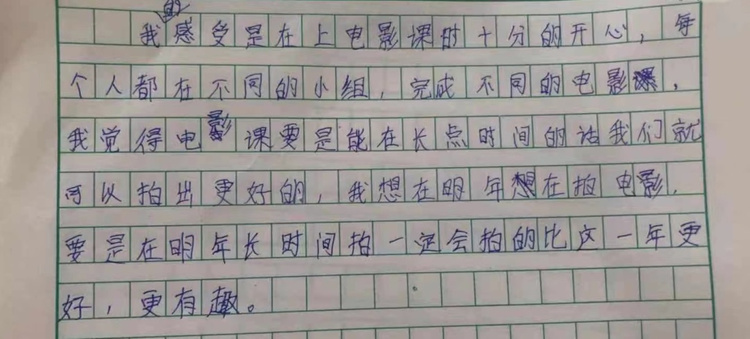 我的感受是在上电影课时十分的开心，每
个人都在不同的小组，完成不同的电影，
我觉得电影课要是能在长点时间的话我们就
可以拍出更好的，我想在明年想在拍电影，
要是在明年长时间拍一定会拍的比这一年更
好，更有趣。